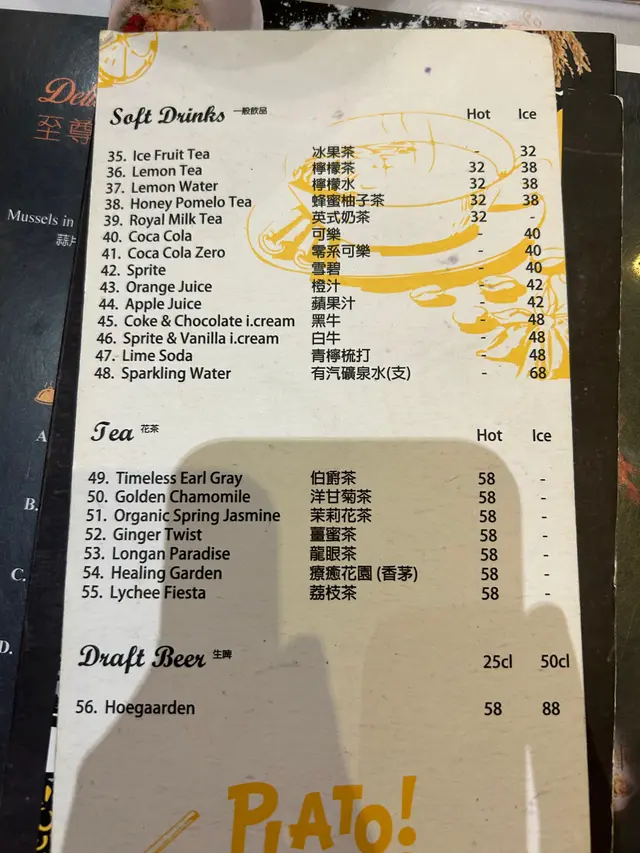 Deli
至尊
Mussels in
蒜片
A
B.
C.
D.
Soft Drinks 一般飲品 Hot Ice
35. Ice Fruit Tea 冰果茶 - 32
36. Lemon Tea 檸檬茶 32 38
37. Lemon Water 檸檬水 32 38
38. Honey Pomelo Tea 蜂蜜柚子茶 32 38
39. Royal Milk Tea 英式奶茶 32 -
40. Coca Cola 可樂 - 40
41. Coca Cola Zero 零系可樂 - 40
42. Sprite 雪碧 - 40
43. Orange Juice 橙汁 - 42
44. Apple Juice 蘋果汁 - 42
45. Coke & Chocolate i.cream 黑牛 - 48
46. Sprite & Vanilla i.cream 白牛 - 48
47. Lime Soda 青檸梳打 - 48
48. Sparkling Water 有汽礦泉水(支) - 68
Tea 花茶 Hot Ice
49. Timeless Earl Gray 伯爵茶 58 -
50. Golden Chamomile 洋甘菊茶 58 -
51. Organic Spring Jasmine 茉莉花茶 58 -
52. Ginger Twist 薑蜜茶 58 -
53. Longan Paradise 龍眼茶 58 -
54. Healing Garden 療癒花園 (香茅) 58 -
55. Lychee Fiesta 荔枝茶 58 -
Draft Beer 生啤 25cl 50cl
56. Hoegaarden 58 88
PIATO!